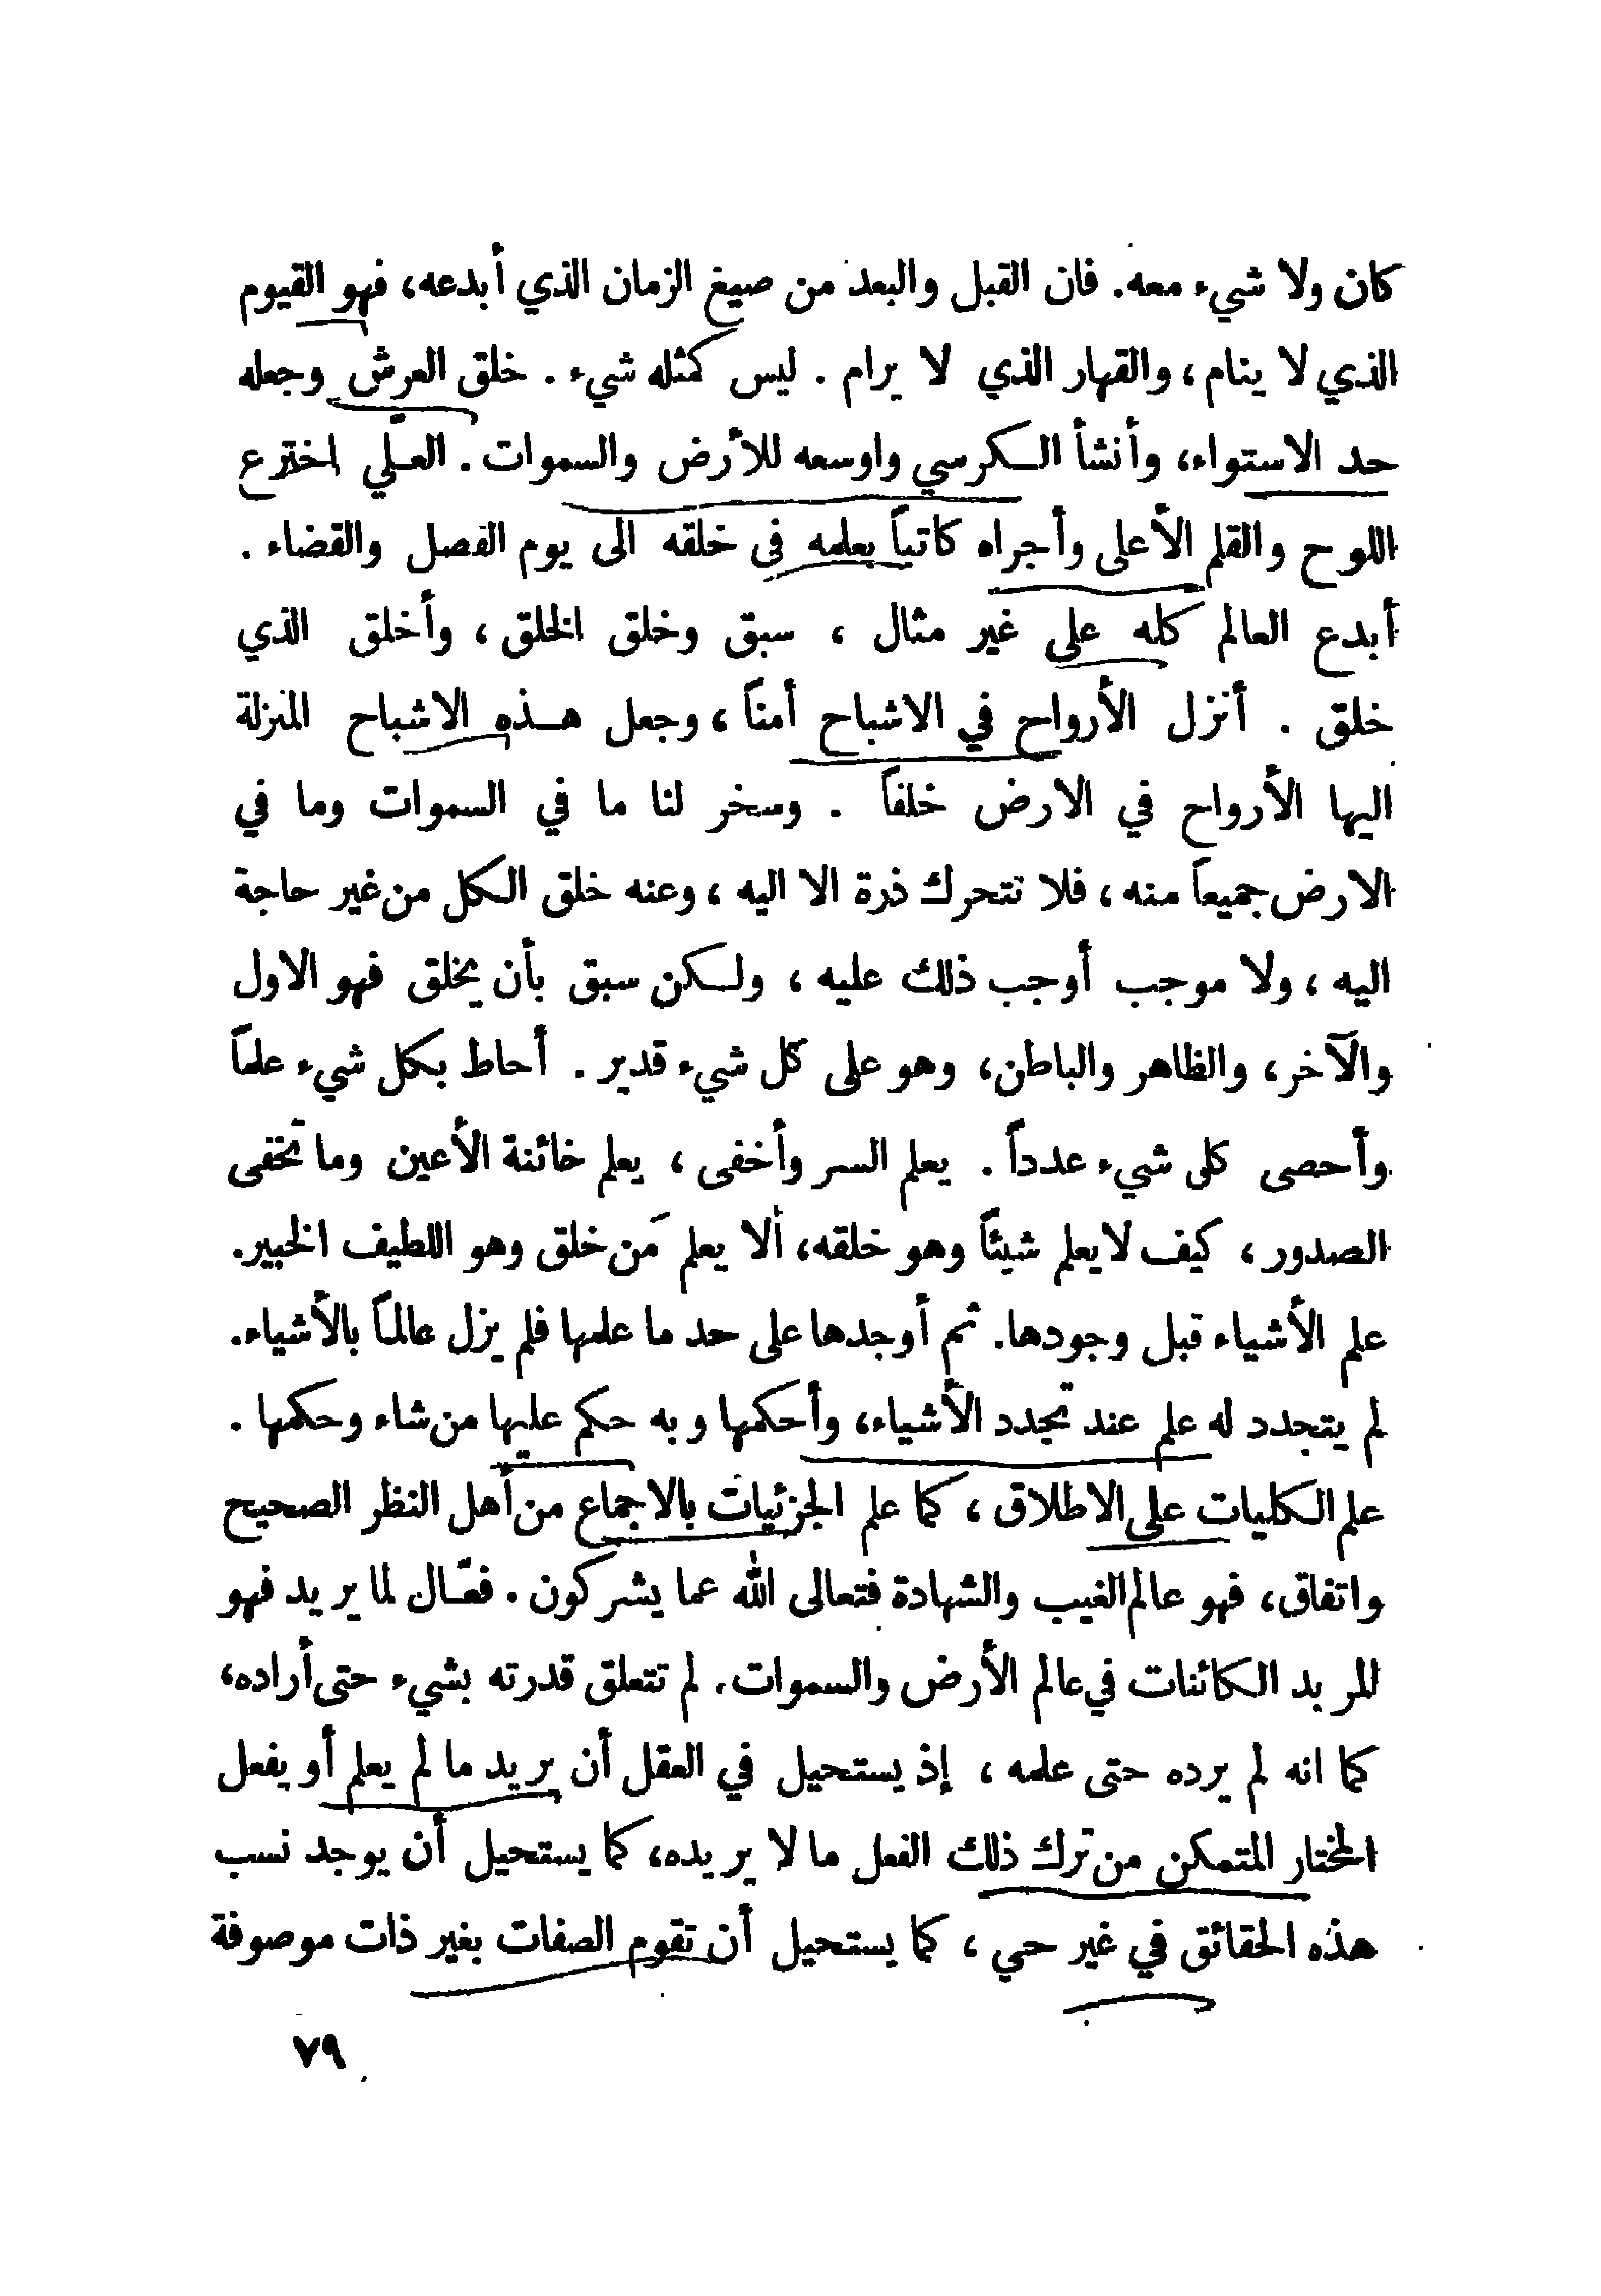 كان ولا شيء معه. فان القبل والبعد من صيغ الزمان الذي أبدعه، فهو القيوم
الذي لا ينام، والقهار الذي لا يرام . ليس كمثله شيء . خلق العرش وجعله
حد الاستواء، وأنشأ الكرسي واوسعه للأرض والسموات . العلي اخترع
اللوح والقلم الأعلى وأجراه كاتباً بعلمه فى خلقه الى يوم الفصل والقضاء .
أبدع العالم كله على غير مثال ، سبق وخلق الخلق ، وأخلق الذي
خلق . أنزل الأرواح في الاشباح أمناً ، وجعل هذه الاشباح المنزلة
اليها الأرواح في الارض خلفاً . وسخر لنا ما في السموات وما في
الارض جميعاً منه ، فلا تتحرك ذرة الا اليه ، وعنه خلق الكل من غير حاجة
اليه ، ولا موجب أوجب ذلك عليه ، ولكن سبق بأن يخلق فهو الاول
والآخر، والظاهر والباطن، وهو على كل شيء قدير . أحاط بكل شيء علماً
وأحصى كل شيء عدداً . يعلم السر وأخفى ، يعلم خائنة الأعين وما تخفى
الصدور ، كيف لا يعلم شيئاً وهو خلقه، ألا يعلم مَن خلق وهو اللطيف الخبير.
علم الأشياء قبل وجودها. ثم أوجدها على حد ما علمها فلم يزل عالماً بالأشياء.
لم يتجدد له علم عند تجدد الأشياء، وأحكمها وبه حكم عليها من شاء وحكمها .
علم الكليات على الاطلاق ، كما علم الجزئيات بالاجماع من أهل النظر الصحيح
واتفاق، فهو عالم الغيب والشهادة فتعالى الله عما يشركون . فعّال لما يريد فهو
المريد الكائنات في عالم الأرض والسموات. لم تتعلق قدرته بشيء حتى أراده،
كما انه لم يرده حتى علمه ، إذ يستحيل في العقل أن يريد ما لم يعلم أو يفعل
المختار المتمكن من ترك ذلك الفعل ما لا يريده، كما يستحيل أن يوجد نسب
هذه الحقائق في غير حي ، كما يستحيل أن تقوم الصفات بغير ذات موصوفة
٧٩